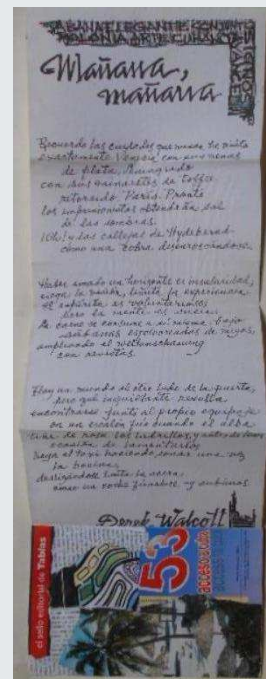 Mañana,
mañana
Recuerdo las ciudades que nunca he visto
exactamente. Venecia con sus venas
de plata, Leningrado
con sus minaretes de toffee
retorcido. París. Pronto
los impresionistas obtendrán sol
de las sombras.
¡Oh! y las callejas de Hyderabad
como una cobra desenroscándose.
Haber amado un horizonte es insularidad;
ciega la visión, limita la experiencia.
El espíritu es voluntarioso,
pero la mente es sucia.
La carne se consume a sí misma bajo
sábanas espolvoreadas de migas,
ampliando el Weltanschauung
con revistas.
Hay un mundo al otro lado de la puerta,
pero qué inquietante resulta
encontrarse junto al propio equipaje
en un escalón frío cuando el alba
tiñe de rosa los ladrillos, y antes de tener
ocasión de lamentarlo,
llega el taxi haciendo sonar una vez
la bocina,
deslizándose hasta la acera
como un coche fúnebre, y subimos.
Derek Walcott
el sello editorial de Tablas
53